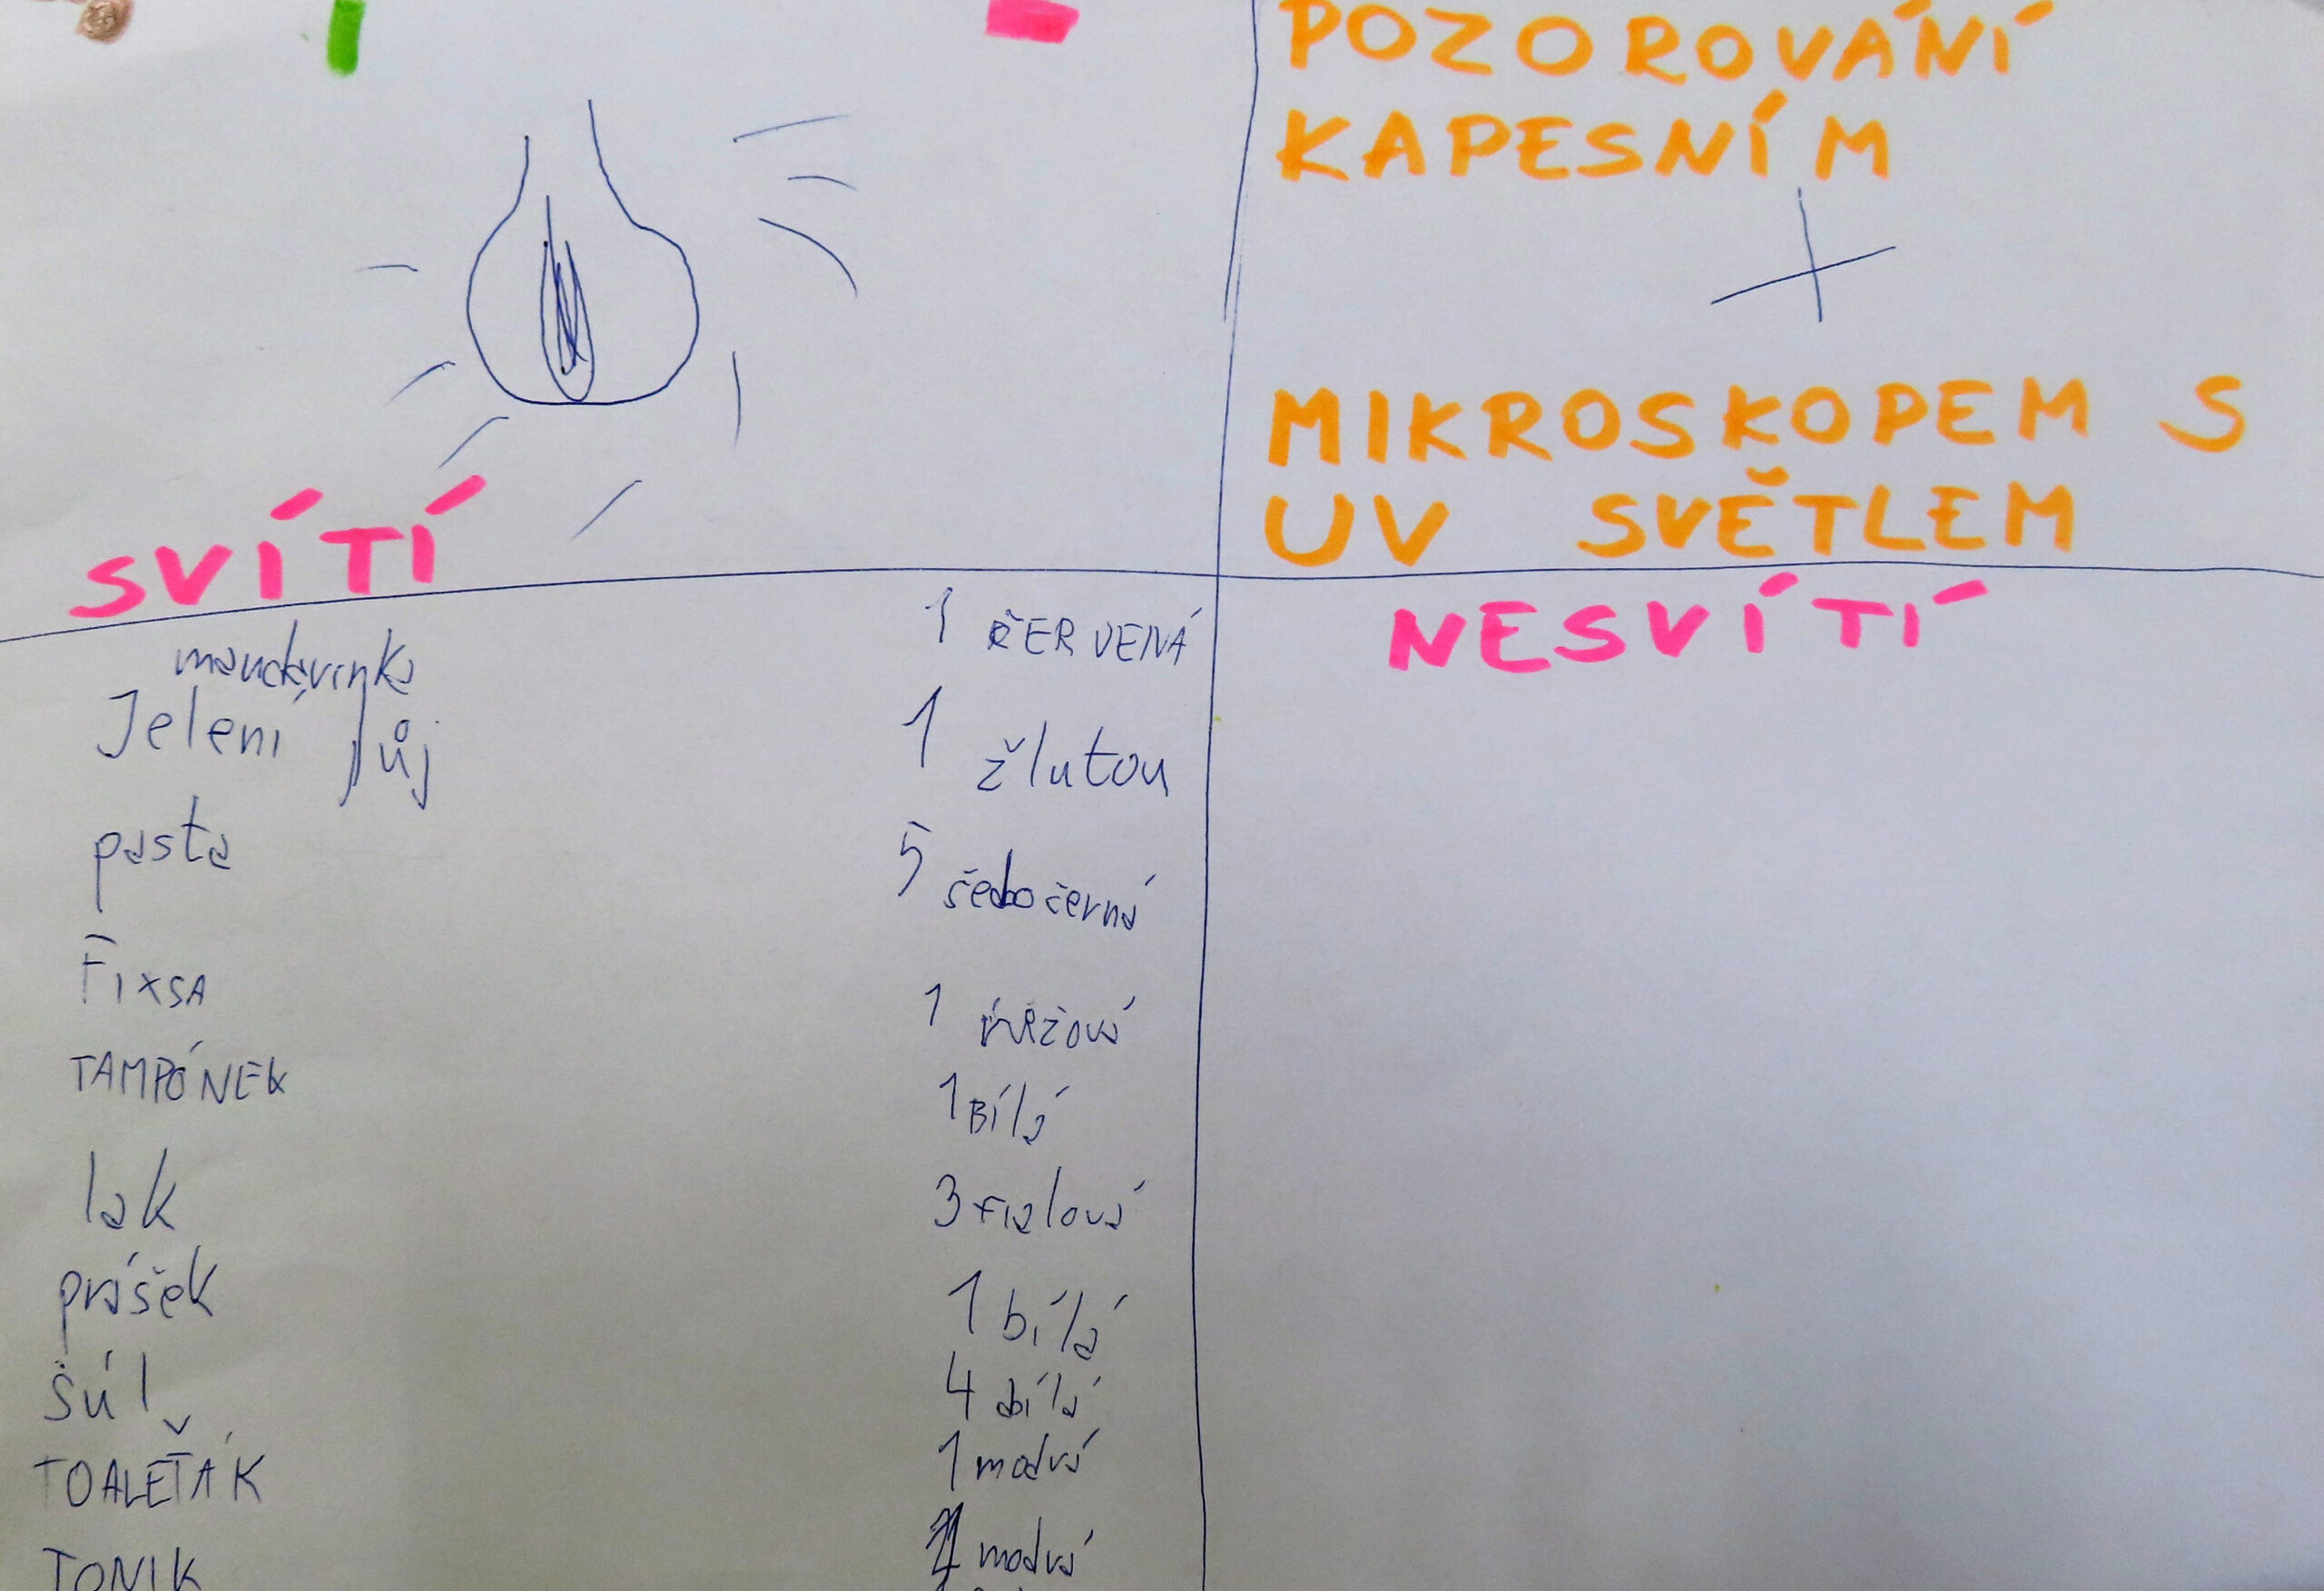 POZOROVÁNÍ
KAPESNÍM
+
MIKROSKOPEM S
UV SVĚTLEM
SVÍTÍ
NESVÍTÍ
mandarinka 1 ČERVENÁ
Jelení lůj 1 žlutou
pasta 5 šedočerná
FIXSA 1 růžová
TAMPÓNEK 1 Bílá
lak 3 fialová
prášek 1 bílá
sůl 4 bílá
TOALEŤÁK 1 modrá
TONIK modrá